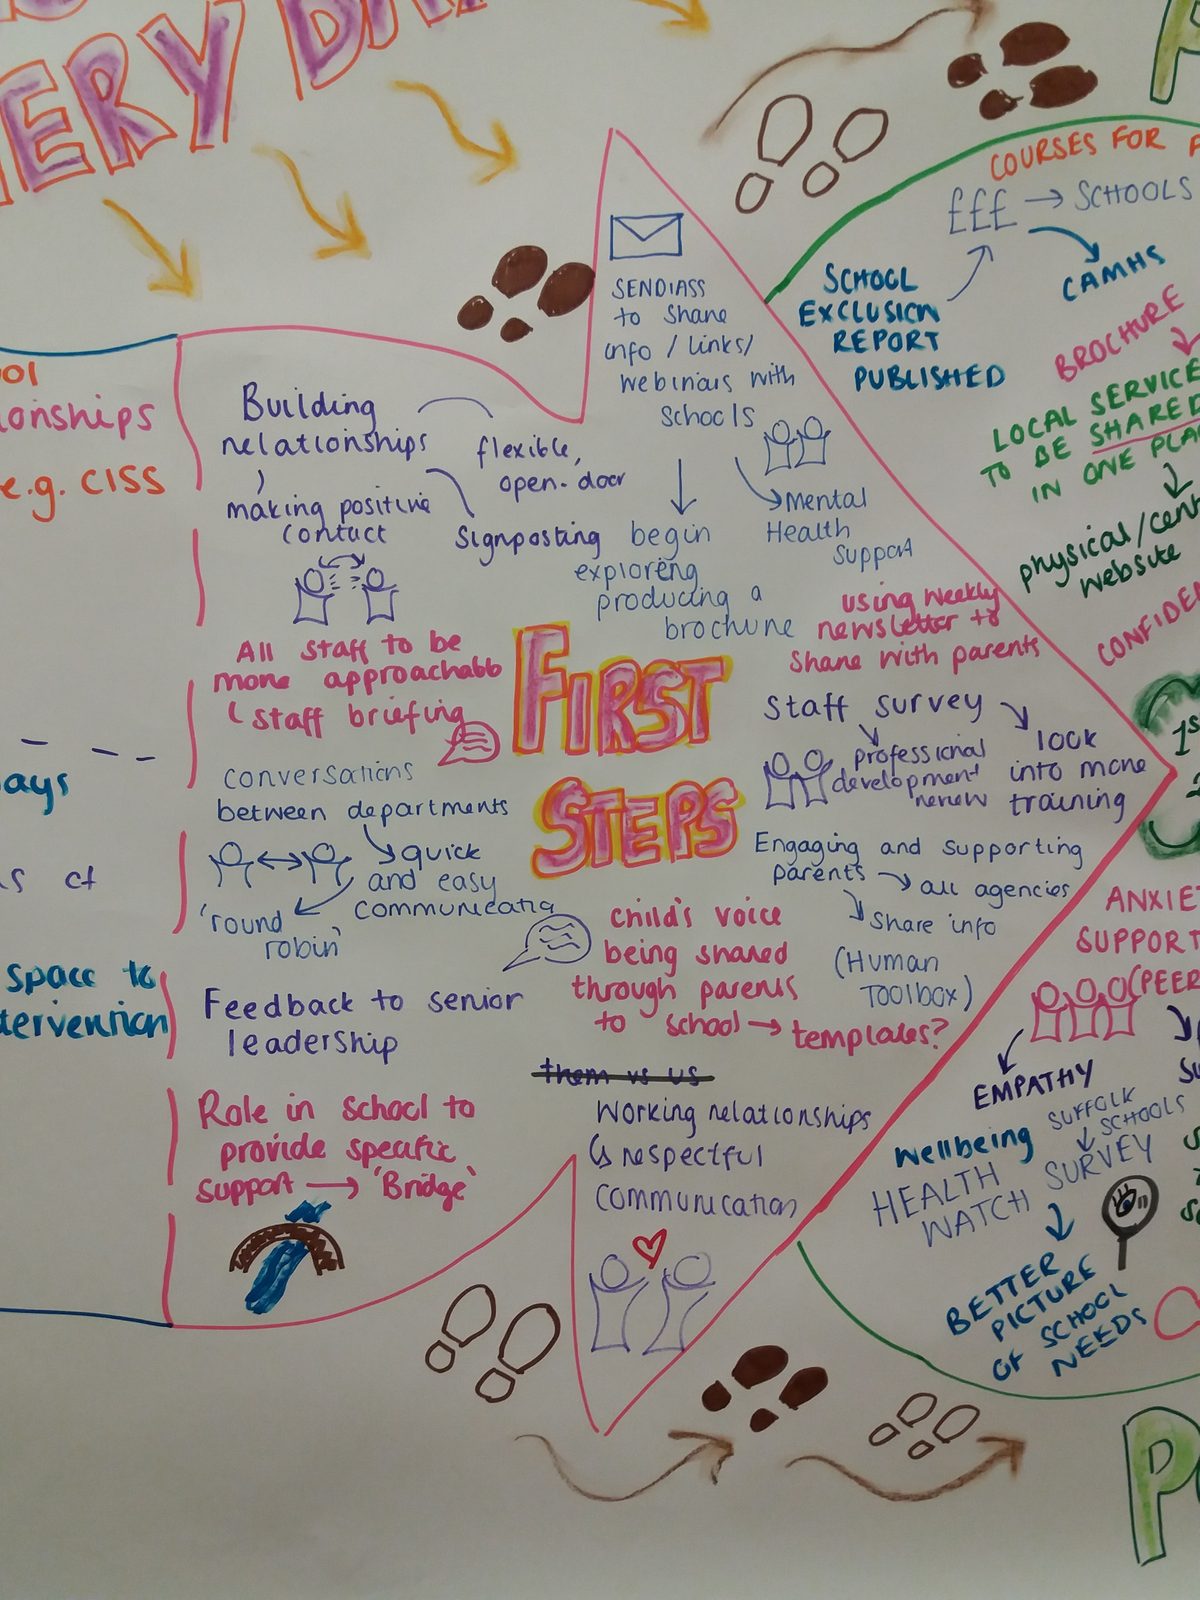 ERY DA
ool
onships
e.g. CISS
ays
s of
space to
tervention
Building
relationships
making positive
contact
flexible,
open-door
Signposting
All staff to be
more approachable
staff briefing
conversations
between departments
quick
and easy
communication
'round
robin'
Feedback to senior
leadership
Role in school to
provide specific
support → 'Bridge'
SENDIASS
to share
info / links /
webinars with
schools
begin
exploring
producing a
brochure
Mental
Health
Support
using weekly
newsletter to
share with parents
FIRST
STEPS
Staff survey
professional
development
review
look
into more
training
Engaging and supporting
parents → all agencies
share info
(Human
Toolbox)
child's voice
being shared
through parents
to school → templates?
them vs us
Working relationships
↳ respectful
communication
COURSES FOR
£££ → SCHOOLS
CAMHS
SCHOOL
EXCLUSION
REPORT
PUBLISHED
BROCHURE
LOCAL SERVICE
TO BE SHARED
IN ONE PLA
physical/cent
website
CONFIDE
1st
2
ANXIE
SUPPORT
(PEER
EMPATHY
SU
SUFFOLK
SCHOOLS
SURVEY
Wellbeing
HEALTH
WATCH
BETTER
PICTURE
OF SCHOOL
NEEDS
P